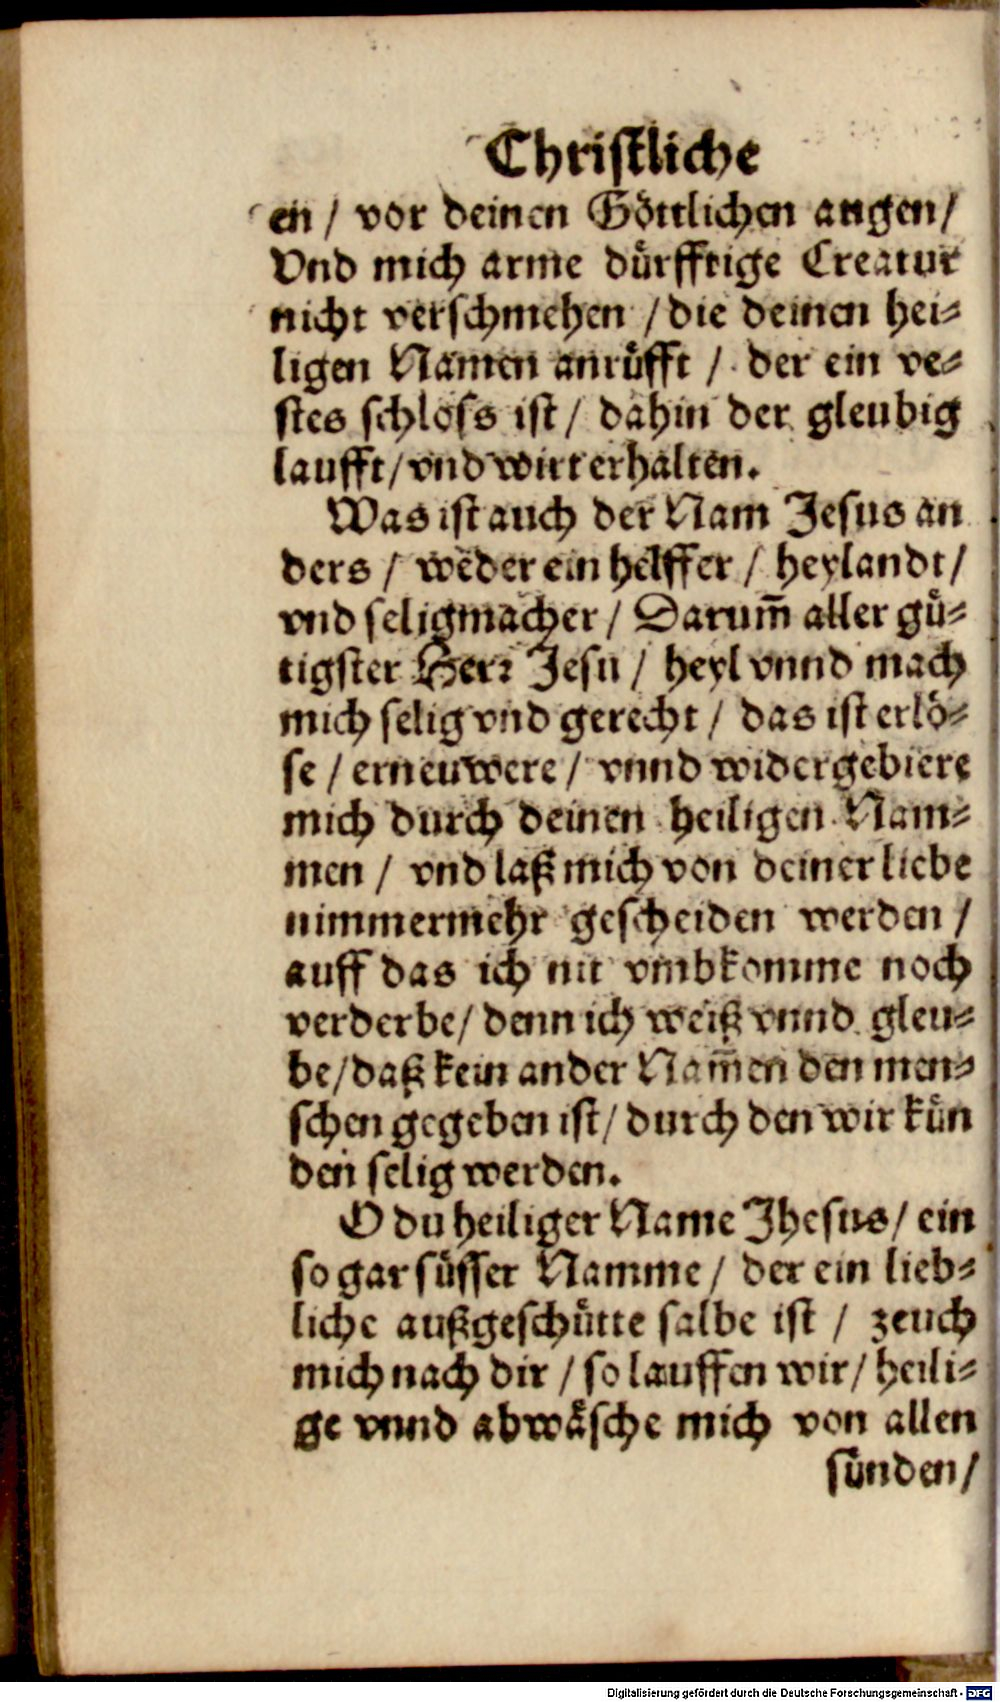 Christliche
en / vor deinen Göttlichen augen /
Vnd mich arme dürfftige Creatur
nicht verschmehen / die deinen hei-
ligen Namen anrüfft / der ein ve-
stes schloss ist / dahin der gleubig
laufft / vnd wirt erhalten.
Was ist auch der Nam Jesus an
ders / weder ein helffer / heylandt /
vnd seligmacher / Darum̃ aller gü-
tigster Herr Jesu / heyl vnnd mach
mich selig vnd gerecht / das ist erlö-
se / erneuwere / vnnd widergebiere
mich durch deinen heiligen Nam-
men / vnd laß mich von deiner liebe
nimmermehr gescheiden werden /
auff das ich nit vmbkomme noch
verderbe / denn ich weiß vnnd gleu-
be / daß kein ander Nam̃en den men-
schen gegeben ist / durch den wir kün
den selig werden.
O du heiliger Name Jhesus / ein
so gar süsser Namme / der ein lieb-
liche außgeschütte salbe ist / zeuch
mich nach dir / so lauffen wir / heili-
ge vnnd abwäsche mich von allen
sünden /
Digitalisierung gefördert durch die Deutsche Forschungsgemeinschaft - DFG